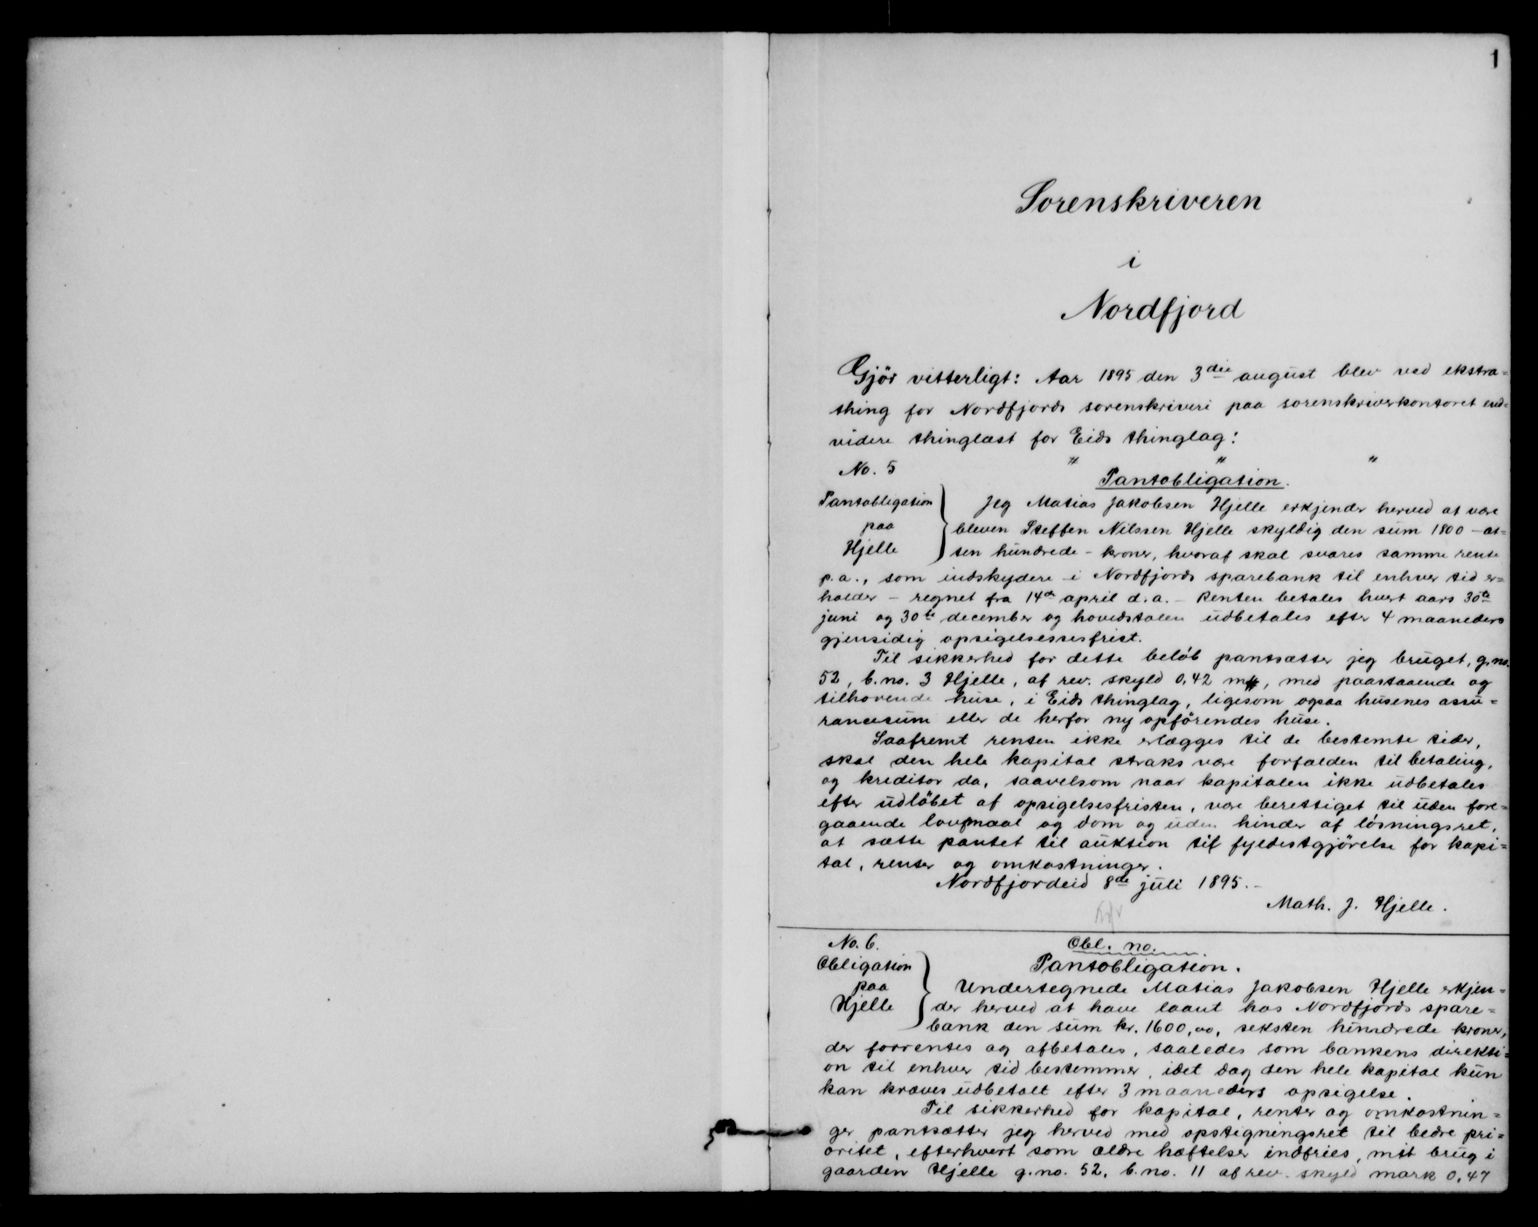 1
Sorenskriveren
i
Nordfjord
Gjör vitterligt: Aar 1895 den 3die august blev ved ekstra=
thing for Nordfjords sorenskriveri paa sorenskriverkontoret end=
videre thinglæst for Eids thinglag:
No. 5 " " "
Pantobligation.
Pantobligation
paa
Hjelle
Jeg Matias Jakobsen Hjelle erkjender herved at være
bleven Steffen Nilssen Hjelle skyldig den sum 1800 – at=
ten hundrede – kroner, hvoraf skal svares samme rente
p.a., som indskydere i Nordfjords sparebank til enhver tid er=
holder – regnet fra 14de april d.a. – Renten betales hvert aars 30te
juni og 30te december og hovedstolen udbetales efter 4 maaneders
gjensidig opsigelsessesfrist.
Til sikkerhed for dette belöb pantsætter jeg bruget, g.no.
52, b.no. 3 Hjelle, af rev. skyld 0,42 mk, med paastaaende og
tilhorende huse, i Eids thinglag, ligesom ogsaa husenes assu=
rancesum eller de herfor ny opförendes huse.
Saafremt renten ikke erlægges til de bestemte tider,
skal den hele kapital straks være forfalden til betaling,
og kreditor da, saavelsom naar kapitalen ikke udbetales
efter udlöbet af opsigelsesfristen, være berettiget til uden fore=
gaaende lovmaal og dom og uden hinder af lösningsret,
at sætte pantet til auktion til fyldestgjörelse for kapi=
tal, renter og omkostninger.
Nordfjordeid 8de juli 1895. –
Math. J. Hjelle.
No. 6.
Obl. no.
Obligation
paa
Hjelle
Pantobligation.
Undertegnede Matias Jakobsen Hjelle erkjen=
der herved at have laant hos Nordfjords spare=
bank den sum kr. 1600,00, seksten hundrede kroner,
der forrentes og afbetales, saaledes som bankens direkti=
on til enhver tid bestemmer, idet dog den hele kapital kun
kan kræves udbetalt efter 3 maaneders opsigelse.
Til sikkerhed for kapital, renter og omkostnin=
ger pantsætter jeg herved med opstigningsret til bedre pri=
oritet, efterhvert som ældre hæftelser indfries, mit brug i
gaarden Hjelle g.no. 52, b.no. 11 af rev. skyld mark 0,47